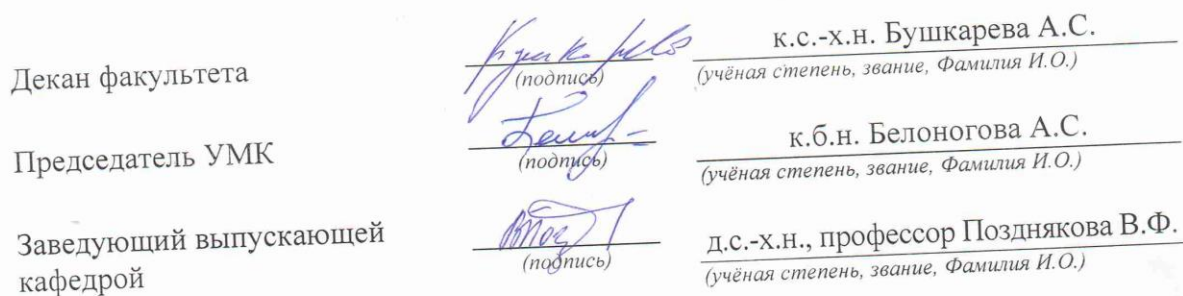 Декан факультета к.с.-х.н. Бушкарева А.С.
(подпись) (учёная степень, звание, Фамилия И.О.)
Председатель УМК к.б.н. Белоногова А.С.
(подпись) (учёная степень, звание, Фамилия И.О.)
Заведующий выпускающей
кафедрой д.с.-х.н., профессор Позднякова В.Ф.
(подпись) (учёная степень, звание, Фамилия И.О.)